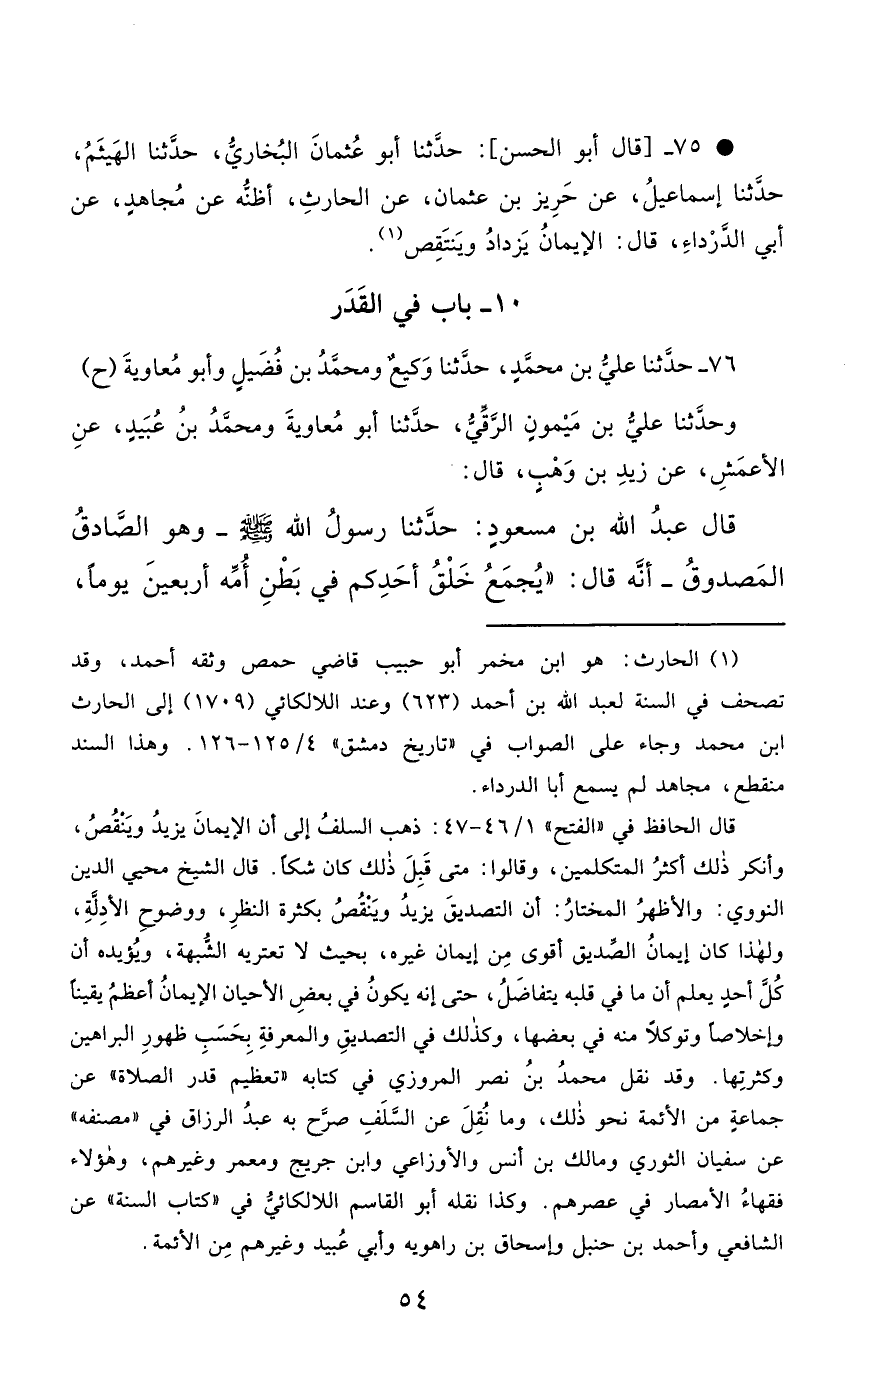 ● ٧٥ـ [قال أبو الحسن]: حدَّثنا أبو عُثمانَ البُخاريُّ، حدَّثنا الهَيثَمُ،
حدَّثنا إسماعيلُ، عن حَرِيز بن عثمان، عن الحارثِ، أظنُّه عن مُجاهدٍ، عن
أبي الدَّرْداءِ، قال: الإيمانُ يَزدادُ ويَنتَقِص(١).
١٠ـ باب في القَدَر
٧٦ـ حدَّثنا عليُّ بن محمَّدٍ، حدَّثنا وَكيعٌ ومحمَّدُ بن فُضَيلٍ وأبو مُعاويةَ (ح)
وحدَّثنا عليُّ بن مَيْمونٍ الرَّقِّيُّ، حدَّثنا أبو مُعاويةَ ومحمَّدُ بنُ عُبَيدٍ، عنِ
الأعمَشِ، عن زيدِ بن وَهْبٍ، قال:
قال عبدُ الله بن مسعودٍ: حدَّثنا رسولُ الله ﷺ ـ وهو الصَّادقُ
المَصدوقُ ـ أنَّه قال: «يُجمَعُ خَلْقُ أحَدِكم في بَطْنِ أُمِّه أربعينَ يوماً،
(١) الحارث: هو ابن مخمر أبو حبيب قاضي حمص وثقه أحمد، وقد
تصحف في السنة لعبد الله بن أحمد (٦٢٣) وعند اللالكائي (١٧٠٩) إلى الحارث
ابن محمد وجاء على الصواب في «تاريخ دمشق» ٤/ ١٢٥-١٢٦. وهذا السند
منقطع، مجاهد لم يسمع أبا الدرداء.
قال الحافظ في «الفتح» ١/ ٤٦-٤٧: ذهب السلفُ إلى أن الإيمانَ يزيدُ ويَنْقُصُ،
وأنكر ذٰلك أكثرُ المتكلمين، وقالوا: متى قَبِلَ ذٰلك كان شكاً. قال الشيخ محيي الدين
النووي: والأظهرُ المختارُ: أن التصديقَ يزيدُ ويَنْقُصُ بكثرة النظرِ، ووضوحِ الأدِلَّةِ،
ولهٰذا كان إيمانُ الصِّديق أقوى مِن إيمان غيره، بحيث لا تعتريه الشُّبهة، ويُؤيده أن
كُلَّ أحدٍ يعلم أن ما في قلبه يتفاضَلُ، حتى إنه يكونُ في بعضِ الأحيان الإيمانُ أعظمُ يقيناً
وإخلاصاً وتوكلاً منه في بعضها، وكذٰلك في التصديقِ والمعرفةِ بِحَسَبِ ظهورِ البراهين
وكثرتِها. وقد نقل محمدُ بنُ نصر المروزي في كتابه «تعظيم قدر الصلاة» عن
جماعةٍ من الأئمة نحو ذٰلك، وما نُقِلَ عن السَّلَفِ صرَّح به عبدُ الرزاق في «مصنفه»
عن سفيان الثوري ومالك بن أنس والأوزاعي وابن جريج ومعمر وغيرهم، وهٰؤلاء
فقهاءُ الأمصار في عصرهم. وكذا نقله أبو القاسم اللالكائيُّ في «كتاب السنة» عن
الشافعي وأحمد بن حنبل وإسحاق بن راهويه وأبي عُبيد وغيرهم مِن الأئمة.
٥٤